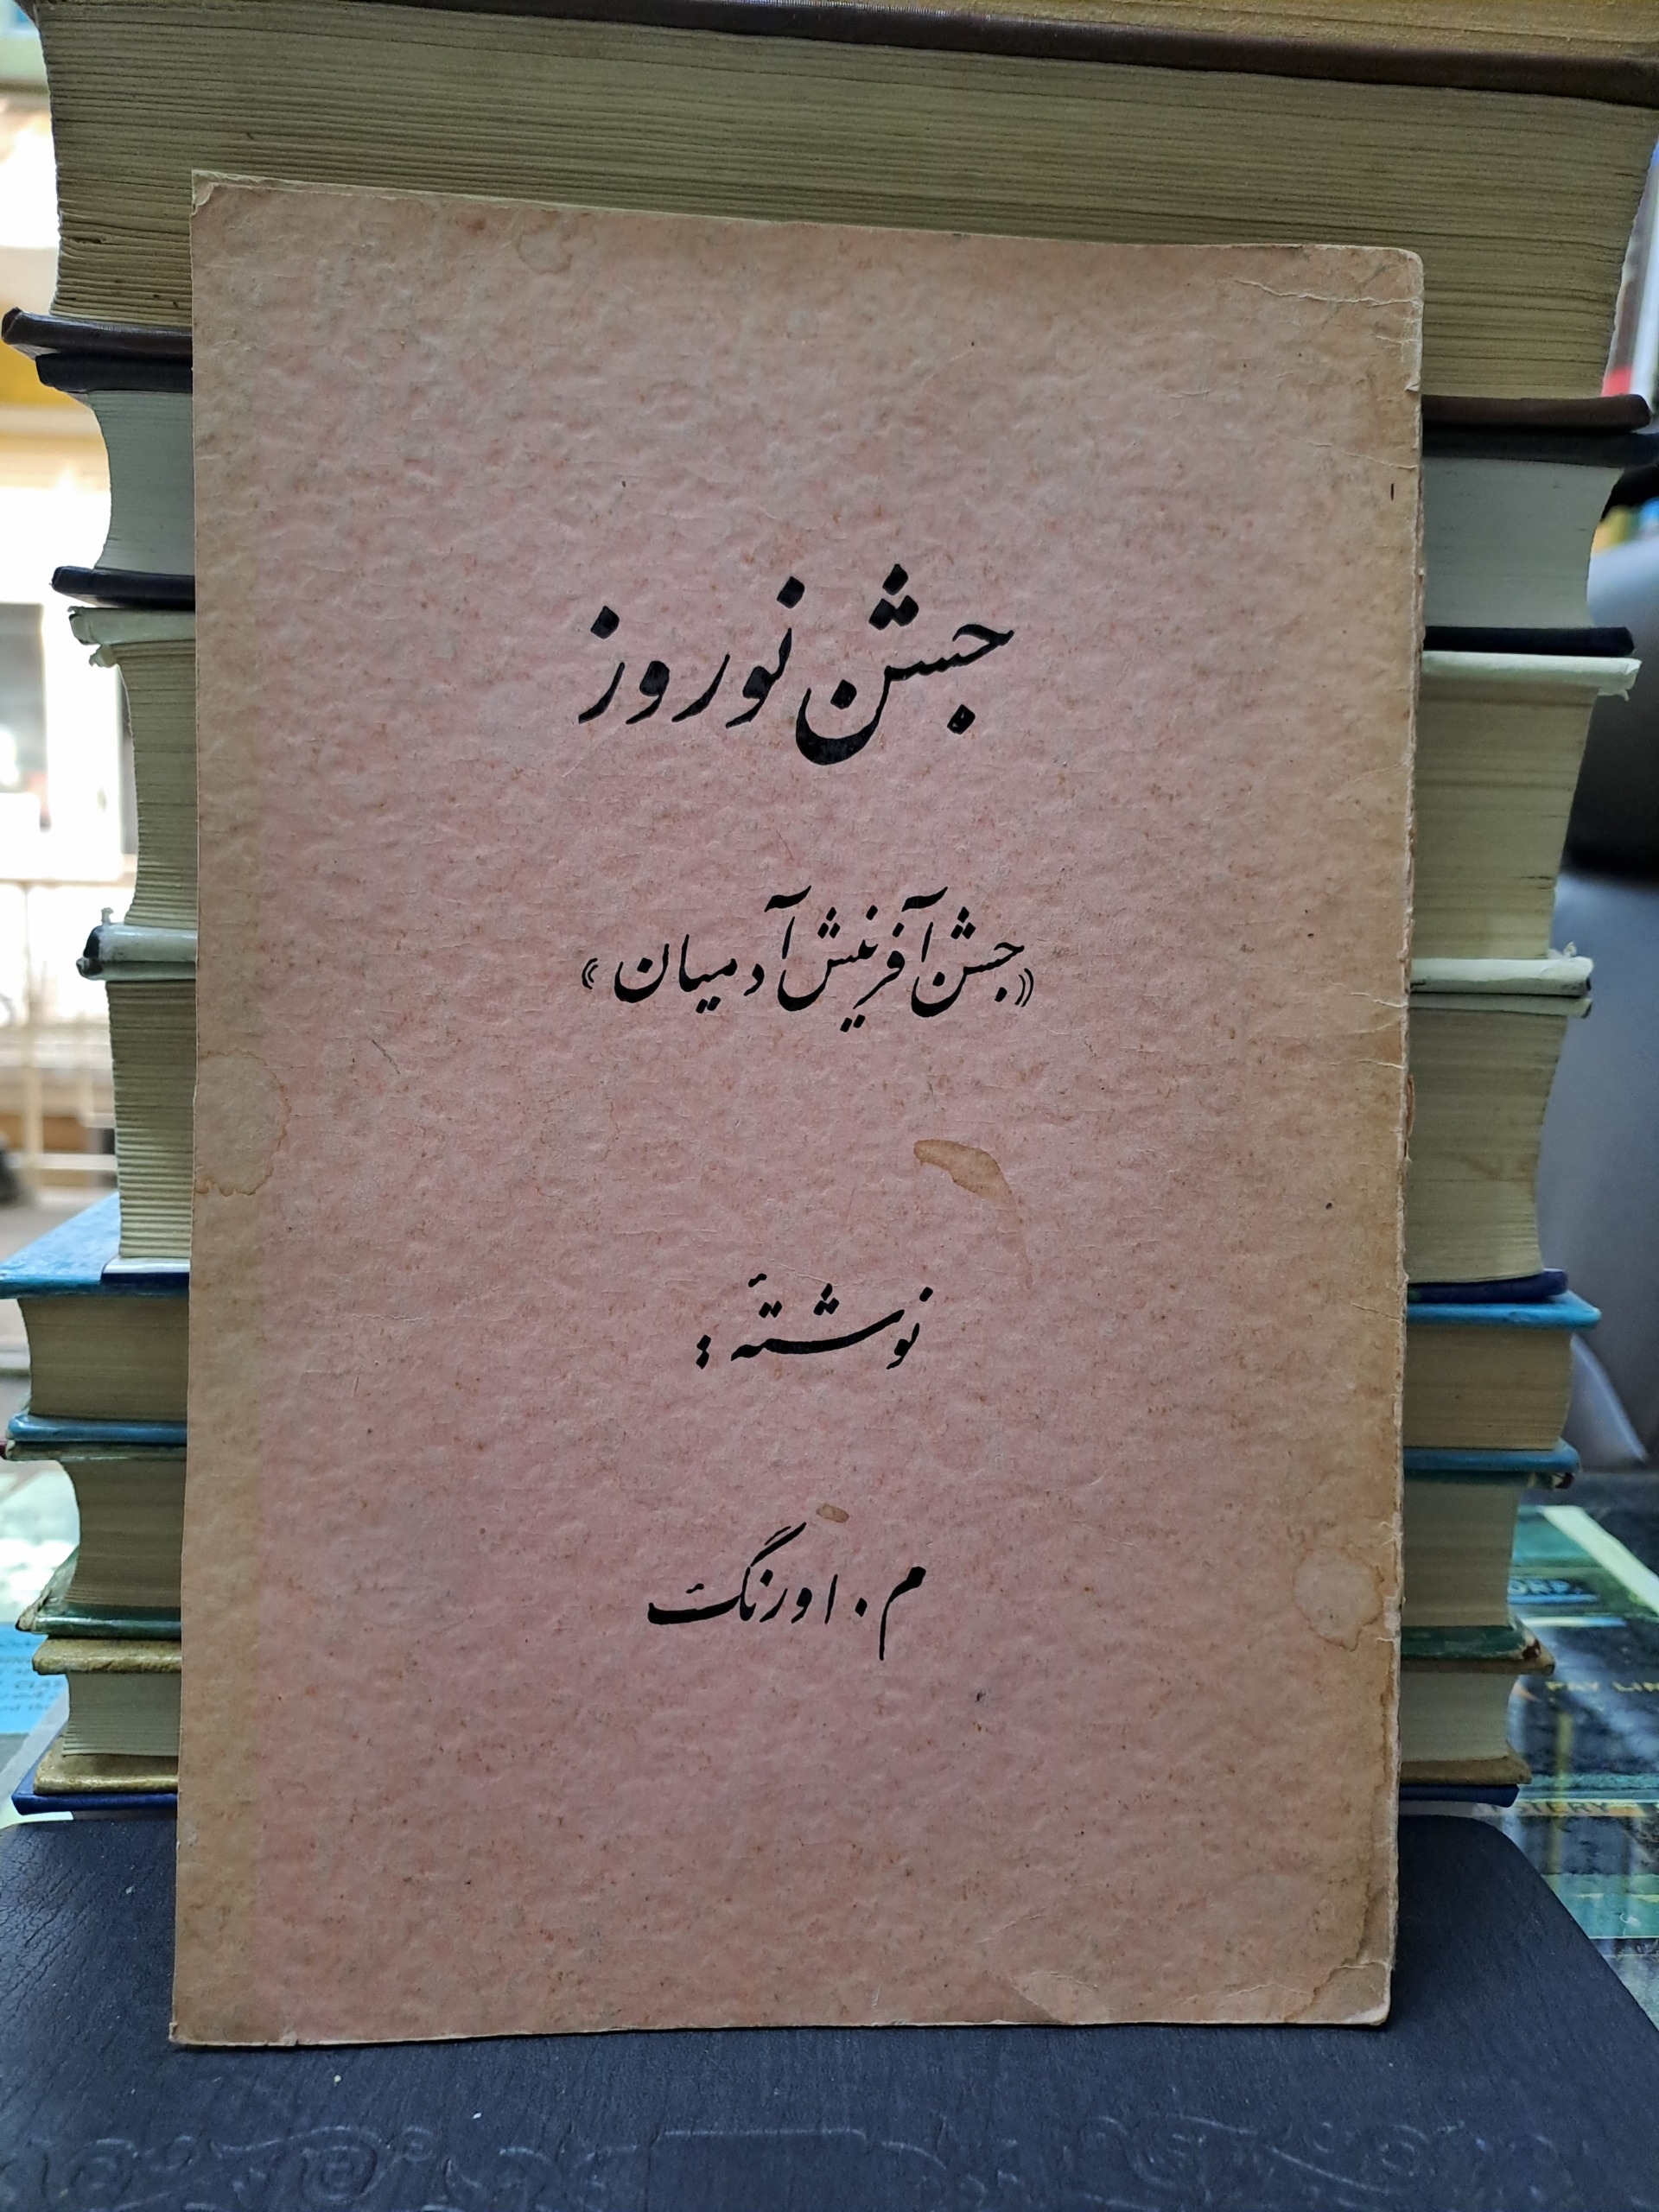 جشن نوروز
«جشن آفرینش آدمیان»
نوشتهٔ :
م . اورنگ